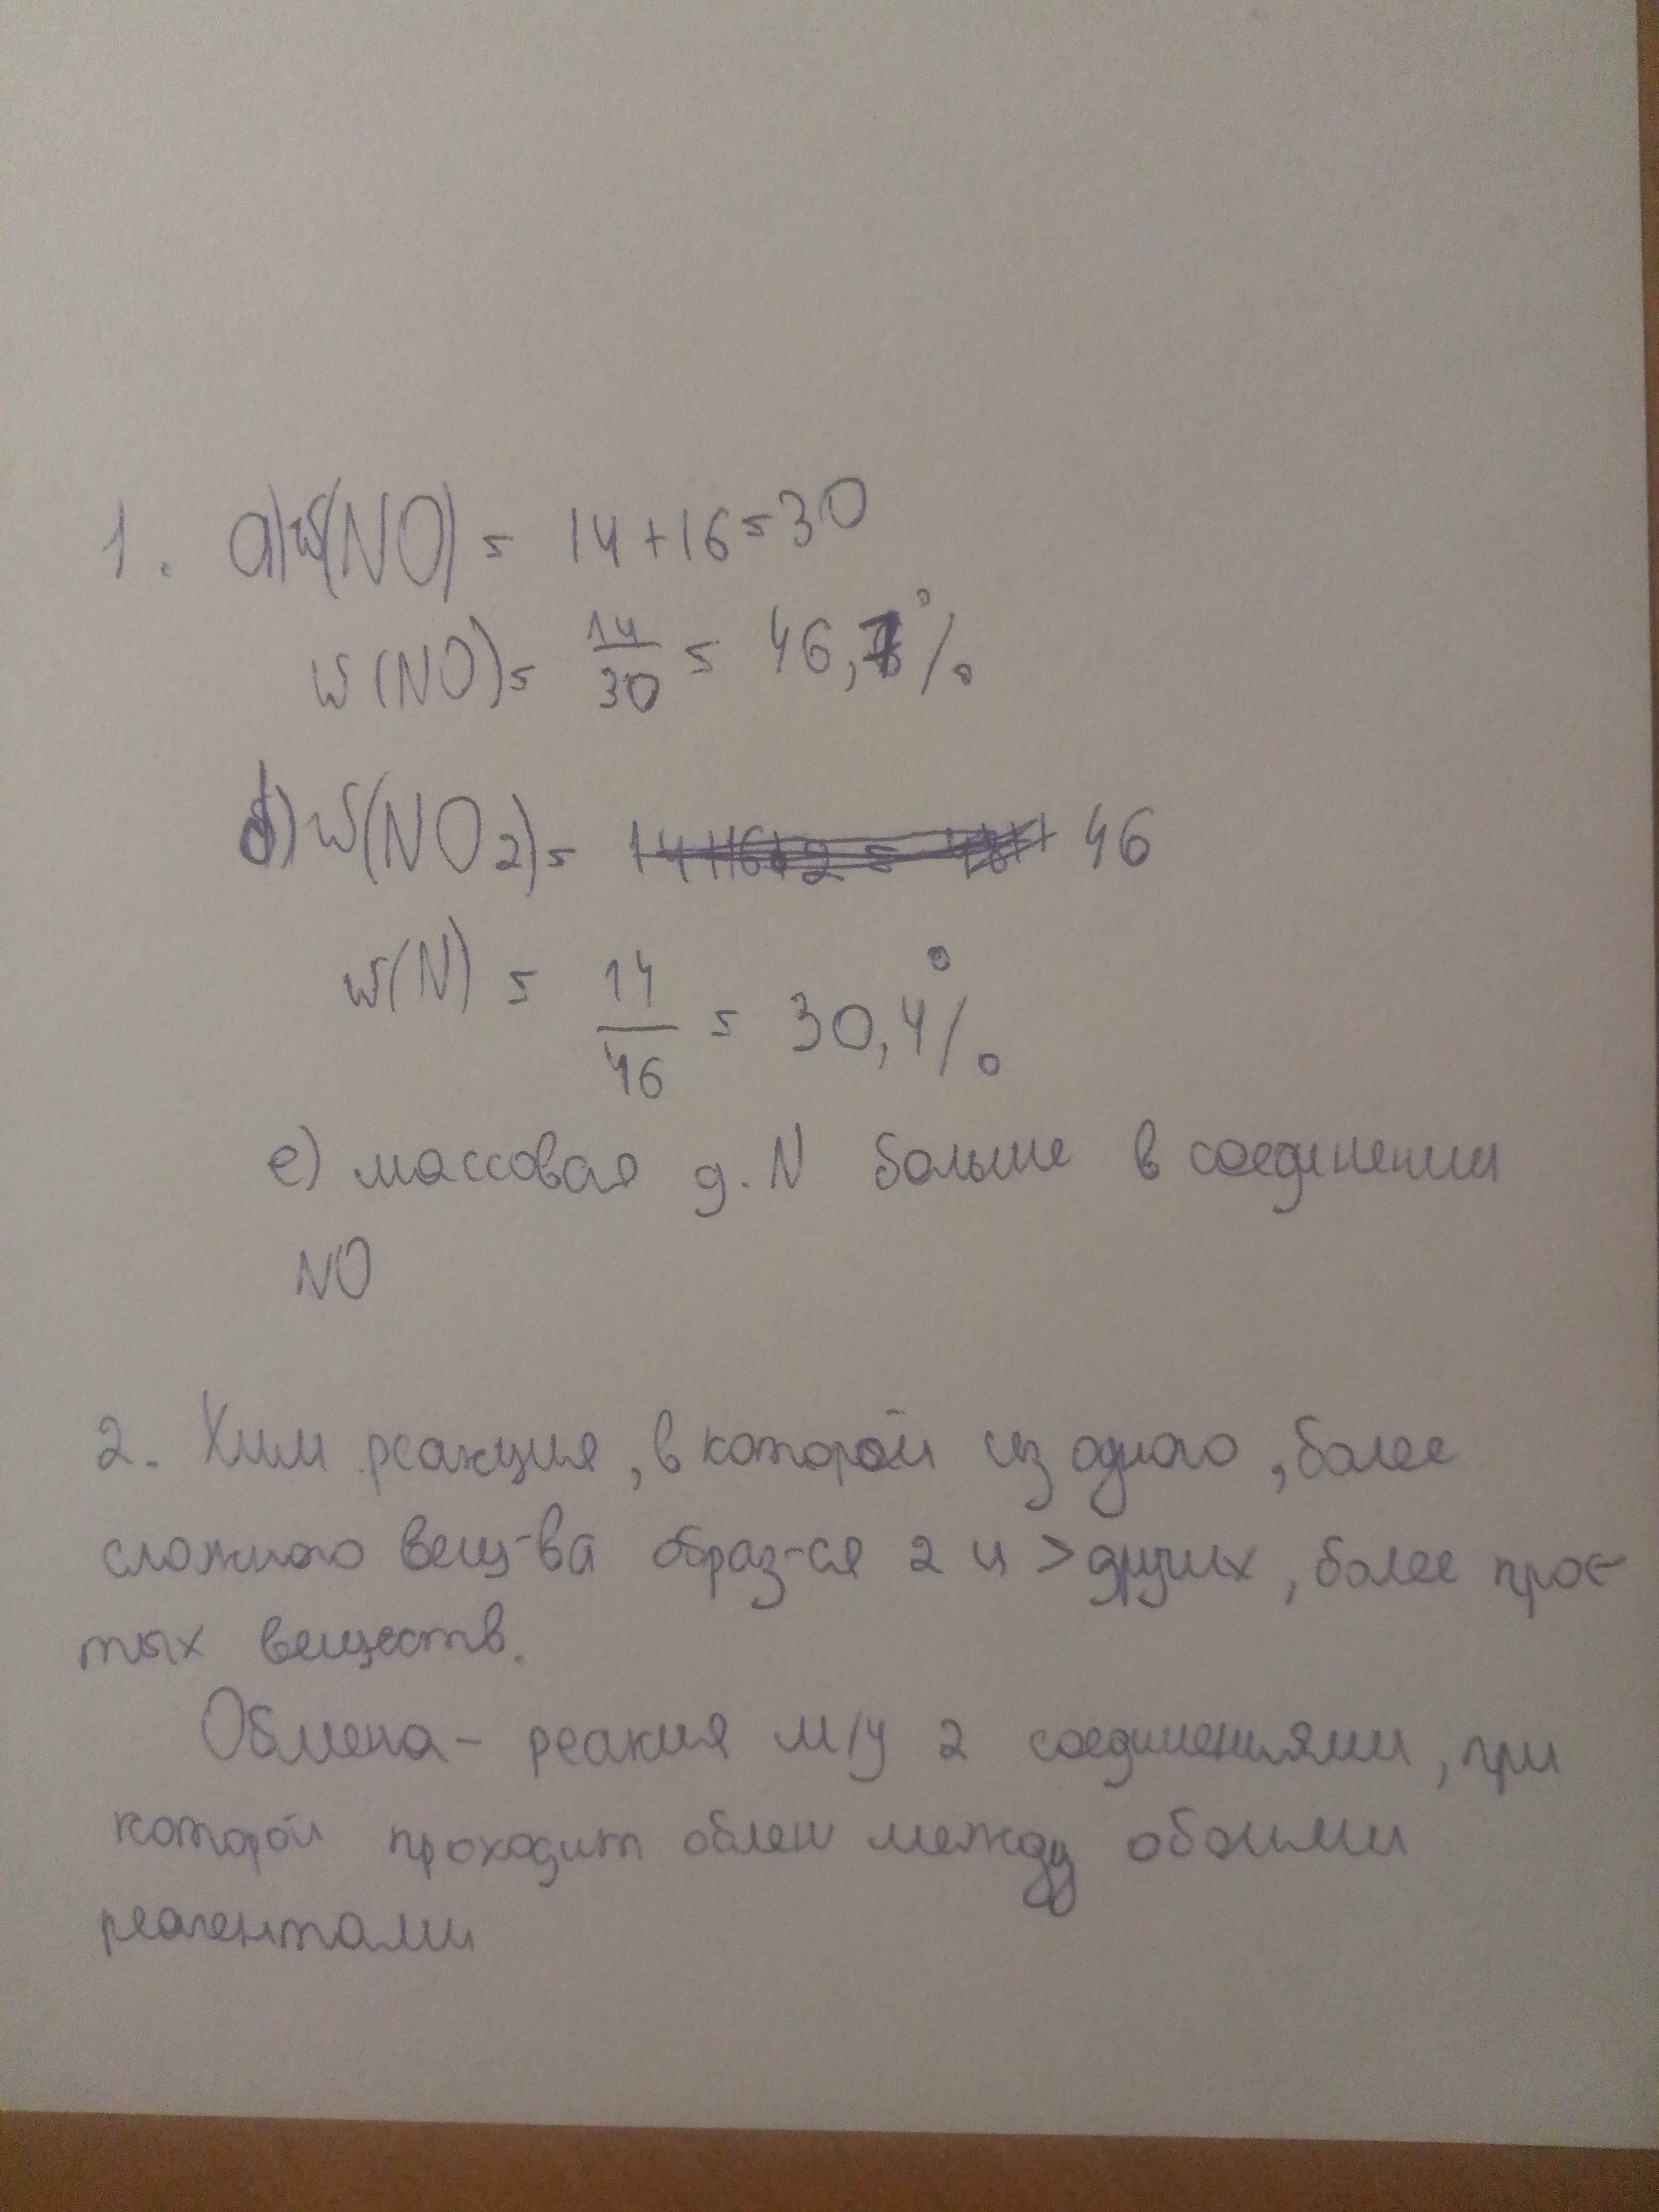 1. а) w(NO) = 14+16=30
w(NO)= 14/30 = 46,7%
б) w(NO2)= 46
w(N) = 14/46 = 30,4%
е) массовая д. N больше в соединении
NO
2. Хим реакция, в которой из одного, более
сложного вещ-ва образ-ся 2 и > других, более прос-
тых веществ.
Обмена - реакия м/у 2 соединениями, при
которой проходит обмен между обоими
реагентами